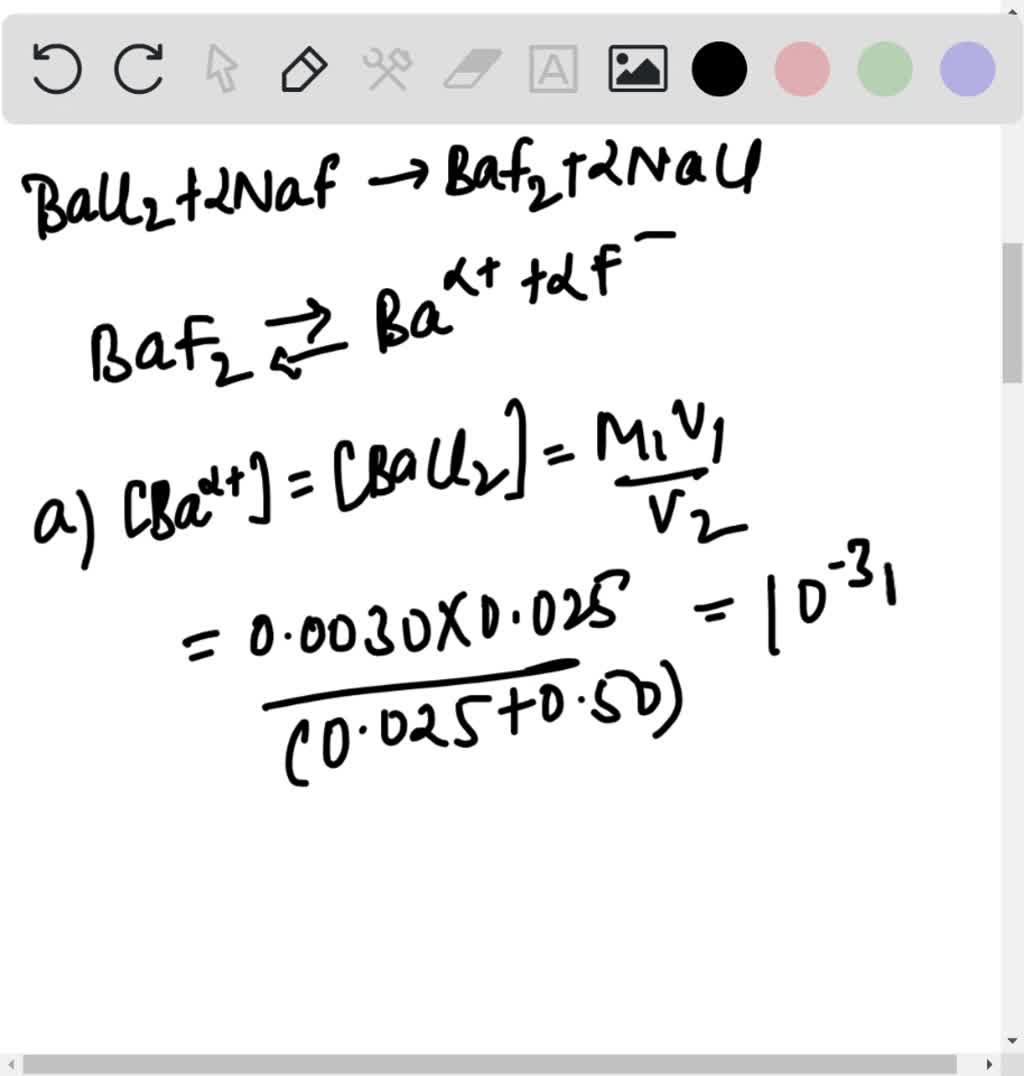 BaCl₂+2NaF → BaF₂+2NaCl
BaF₂ ⇄ Ba²⁺ +2F⁻
a) [Ba²⁺] = [BaCl₂] = M₁V₁/V₂
= 0.0030×0.025/(0.025+0.50) = 10⁻³
A